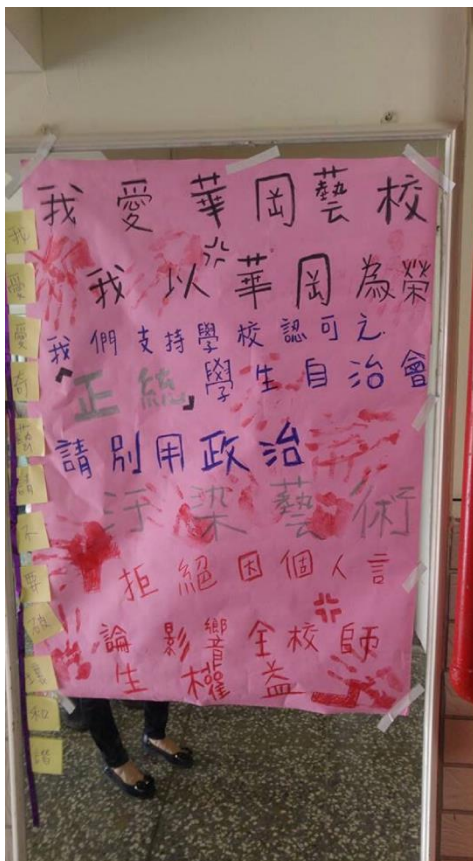 我愛華岡藝校
我以華岡為榮
我們支持學校認可之
「正統」學生自治會
請別用政治
汙染藝術
拒絕因個人言
論影響全校師
生權益
我
愛
愛
奇
藝
請
不
要
破
壞
和
諧